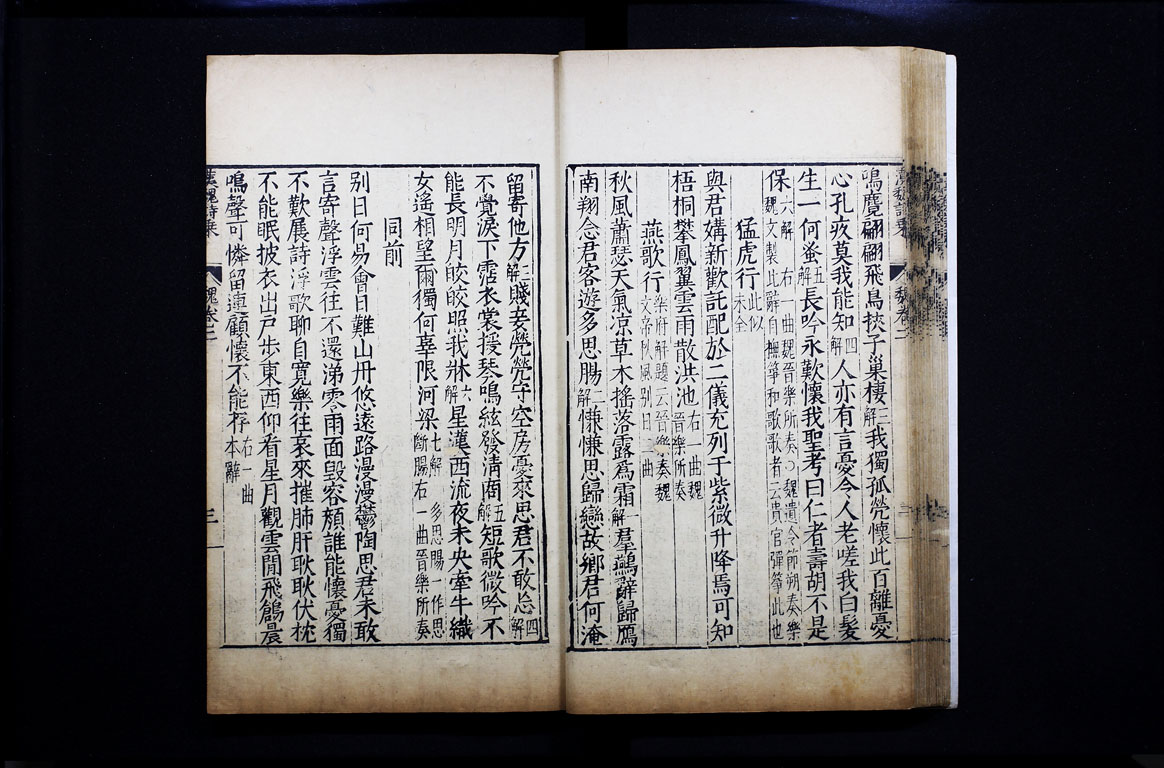 鳴麑翩翩飛鳥挾子巢棲三解我獨孤煢懷此百離憂
心孔疚莫我能知四解人亦有言憂令人老嗟我白髮
生一何蚤五解長吟永歎懷我聖考曰仁者壽胡不是
保六解 右一曲魏晉樂所奏○魏遺令節朔奏樂
魏文製此辭自撫箏和歌歌者云貴官彈箏此也
猛虎行此似
未全
與君媾新歡託配於二儀充列于紫微升降焉可知
梧桐攀鳳翼雲雨散洪池右一曲魏
晉樂所奏
燕歌行樂府解題云晉樂奏魏
文帝秋風別日二曲
秋風蕭瑟天氣涼草木搖落露為霜一解羣鷰辭歸鴈
南翔念君客遊多思腸二解慊慊思歸戀故鄉君何淹
魏卷二
留寄他方三解賤妾煢煢守空房憂來思君不敢忘四解
不覺淚下霑衣裳援琴鳴絃發清商五解短歌微吟不
能長明月皎皎照我牀六解星漢西流夜未央牽牛織
女遙相望爾獨何辜限河梁七解 多思腸一作思
斷腸右一曲晉樂所奏
同前
別日何易會日難山川悠遠路漫漫鬱陶思君未敢
言寄聲浮雲往不還涕零雨面毀容顏誰能懷憂獨
不歎展詩浮歌聊自寬樂往哀來摧肺肝耿耿伏枕
不能眠披衣出戶步東西仰看星月觀雲閒飛鶬晨
鳴聲可憐留連顧懷不能存右一曲
本辭
漢魏詩乘 魏卷二 三